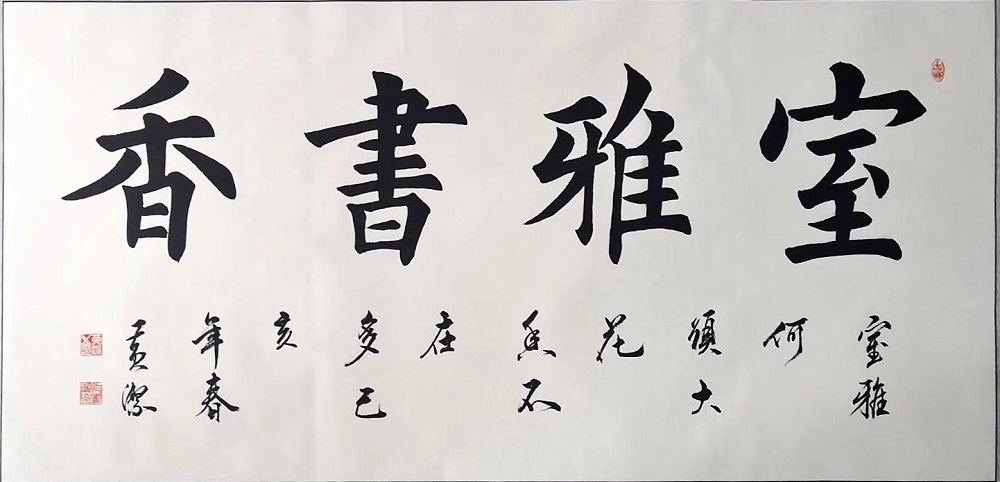 室雅書香
室雅
何
須大
花
香不
在
多己
亥
年春
黃潔